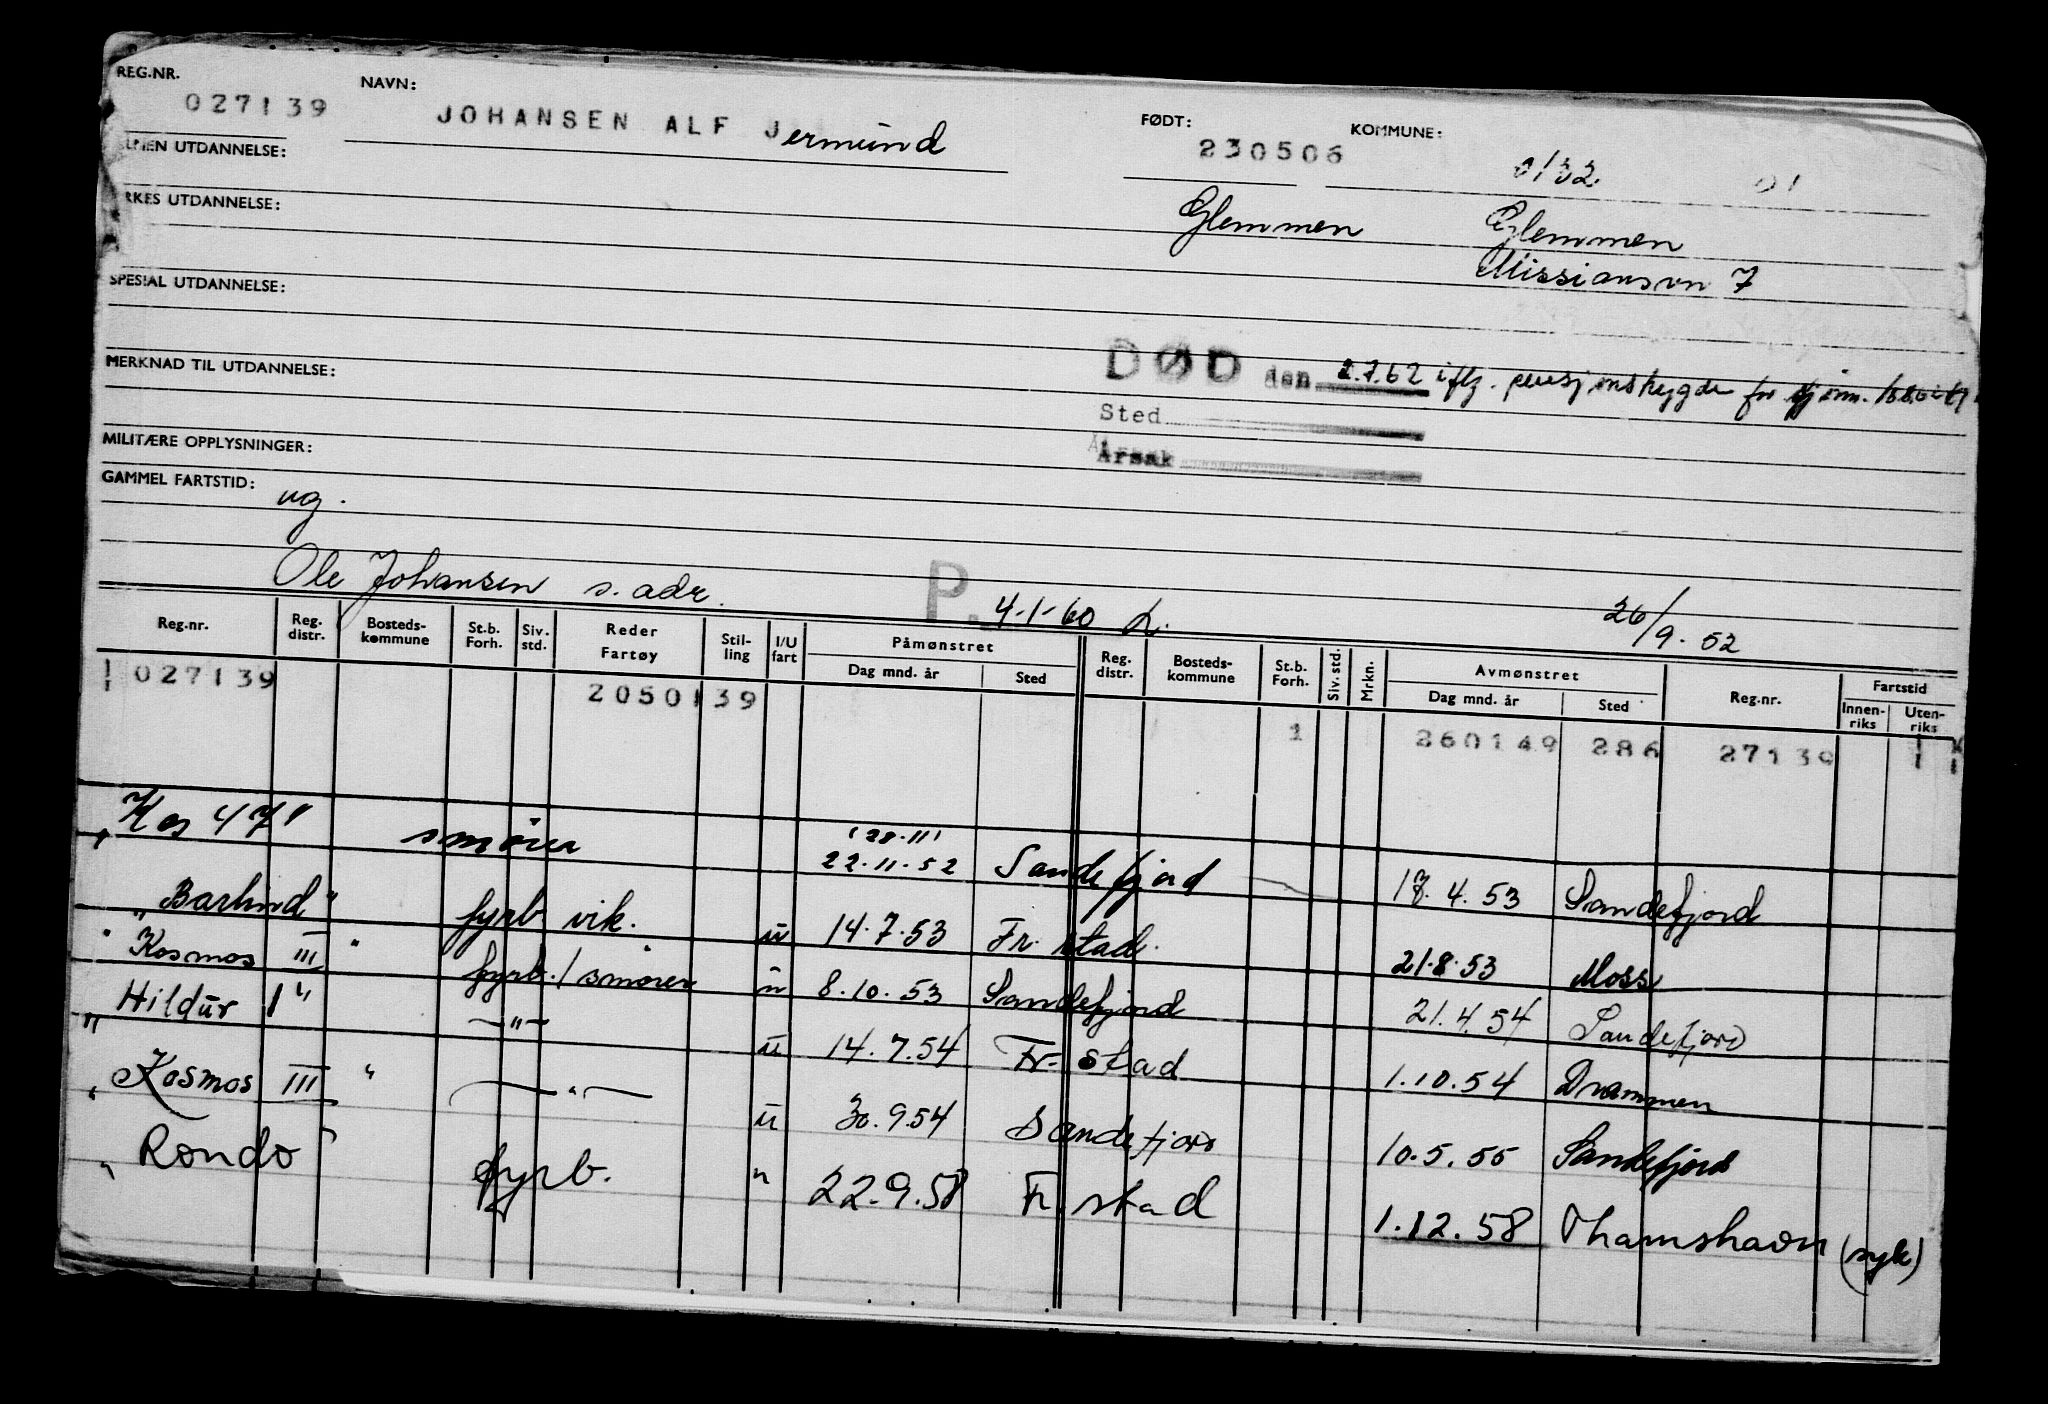 REG.NR. NAVN: FØDT: KOMMUNE:
027139 JOHANSEN ALF Jermund 230506 0132 01
UTDANNELSE:
Glemmen Glemmen
RKES UTDANNELSE: Missionsvn 7
SPESIAL UTDANNELSE:
DØD den 2.7.62 iflg. pensjonstrygden for sjøm.
MERKNAD TIL UTDANNELSE:
Sted
Årsak
MILITÆRE OPPLYSNINGER:
GAMMEL FARTSTID:
ug.
Ole Johansen s. adr. P. 4-1-60 L. 26/9.52
Reg.nr. Reg. distr. Bosteds-kommune St.b. Forh. Siv. std. Reder Fartøy Stil-ling I/U fart Påmønstret Dag mnd. år Sted Reg. distr. Bosteds-kommune St.b. Forh. Siv. std. Mrkn. Avmønstret Dag mnd. år Sted Reg.nr. Fartstid Innen-riks Uten-riks
027139 2050139 1 260149 286 27139
"Kos 47" smører (28.11) 22.11.52 Sandefjord 17.4.53 Sandefjord
"Barlind" fyrb vik. u 14.7.53 Fr. stad. 21.8.53 Moss
"Kosmos III" fyrb./smører u 8.10.53 Sandefjord 21.4.54 Sandefjord
"Hildur I" —"— u 14.7.54 Fr. stad 1.10.54 Drammen
"Kosmos III" —"— u 30.9.54 Sandefjord 10.5.55 Sandefjord
"Rondo" fyrb. " 22.9.58 Fr. stad 1.12.58 Thamshavn (syk)